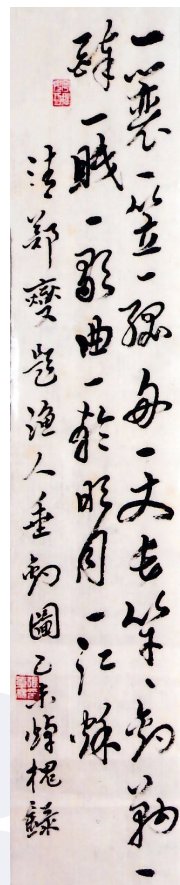 一蓑一笠一孤舟一丈長竿一釣鉤一
醉一眠一歌曲一輪明月一江秋
清鄭燮題漁人垂釣圖乙未焯槐錄